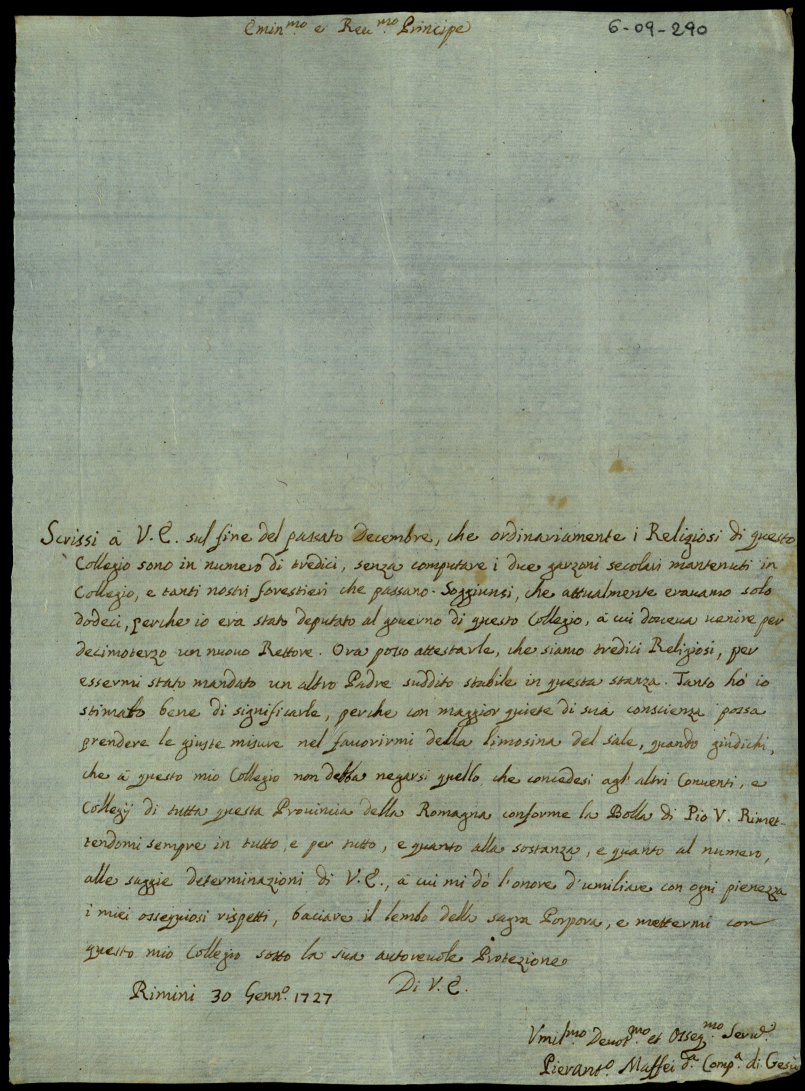 Emin.mo e Reu.mo Principe
6-09-290
Scrissi à V. E. sul fine del passato Decembre, che ordinariamente i Religiosi di questo
Collegio sono in numero di tredici, senza computare i due garzoni secolari mantenuti in
Collegio, e tanti nostri forestieri che passano. Soggiunsi, che attualmente eravamo solo
dodeci, perche io era stato deputato al governo di questo Collegio, à cui doveva venire per
decimoterzo un nuovo Rettore. Ora posso attestarle, che siamo tredici Religiosi, per
essermi stato mandato un altro Padre suddito stabile in questa stanza. Tanto hò io
stimato bene di significarle, perche con maggior quiete di sua conscienza possa
prendere le giuste misure nel favorirmi della limosina del sale, quando giudichi,
che à questo mio Collegio non debba negarsi quello che concedesi agl'altri Conventi, e
Collegij di tutta questa Provincia della Romagna conforme la Bolla di Pio V. Rimet-
tendomi sempre in tutto, e per tutto, e quanto alla sostanza, e quanto al numero,
alle saggie determinazioni di V. E., à cui mi dò l'onore d'umiliare con ogni pienezza
i miei ossequiosi rispetti, baciare il lembo della sagra Porpora, e mettermi con
questo mio Collegio sotto la sua autorevole Protezione
Di V. E.
Rimini 30 Genn.o 1727
Vmil.mo Deuot.mo et Osseq.mo Seru.e
Pierant.o Maffei d.a Comp.a di Gesù